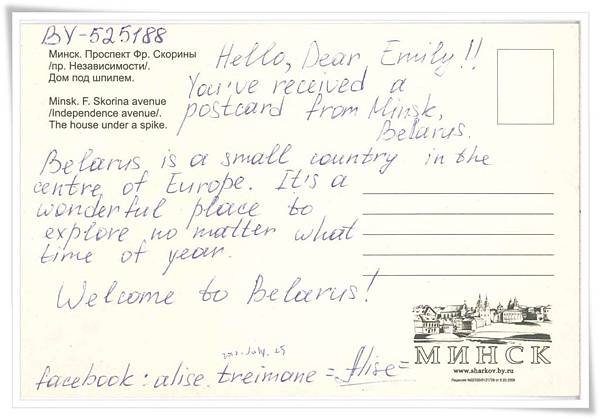 BY-525188
Минск. Проспект Фр. Скорины
/пр. Независимости/.
Дом под шпилем.
Minsk. F. Skorina avenue
/Independence avenue/.
The house under a spike.
Hello, Dear Emily!!
You've received a
postcard from Minsk,
Belarus.
Belarus is a small country in the
centre of Europe. It's a
wonderful place to
explore no matter what
time of year.
Welcome to Belarus!
July. 25
facebook: alise.treimane =Alise=
МИНСК
www.sharkov.by.ru